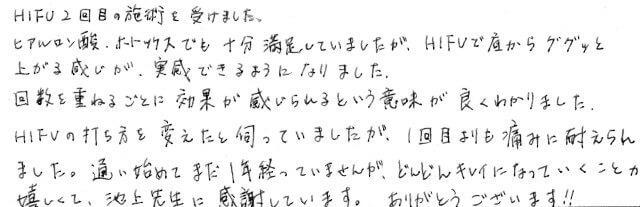 HIFU2回目の施術を受けました。
ヒアルロン酸、ボトックスでも十分満足していましたが、HIFUで底からググッと
上がる感じが、実感できるようになりました。
回数を重ねるごとに効果が感じられるという意味が良くわかりました。
HIFUの打ち方を変えたと伺っていましたが、1回目よりも痛みに耐えられ
ました。通い始めてまだ1年経っていませんが、どんどんキレイになっていくことが
嬉しくて、池上先生に感謝しています。ありがとうございます!!